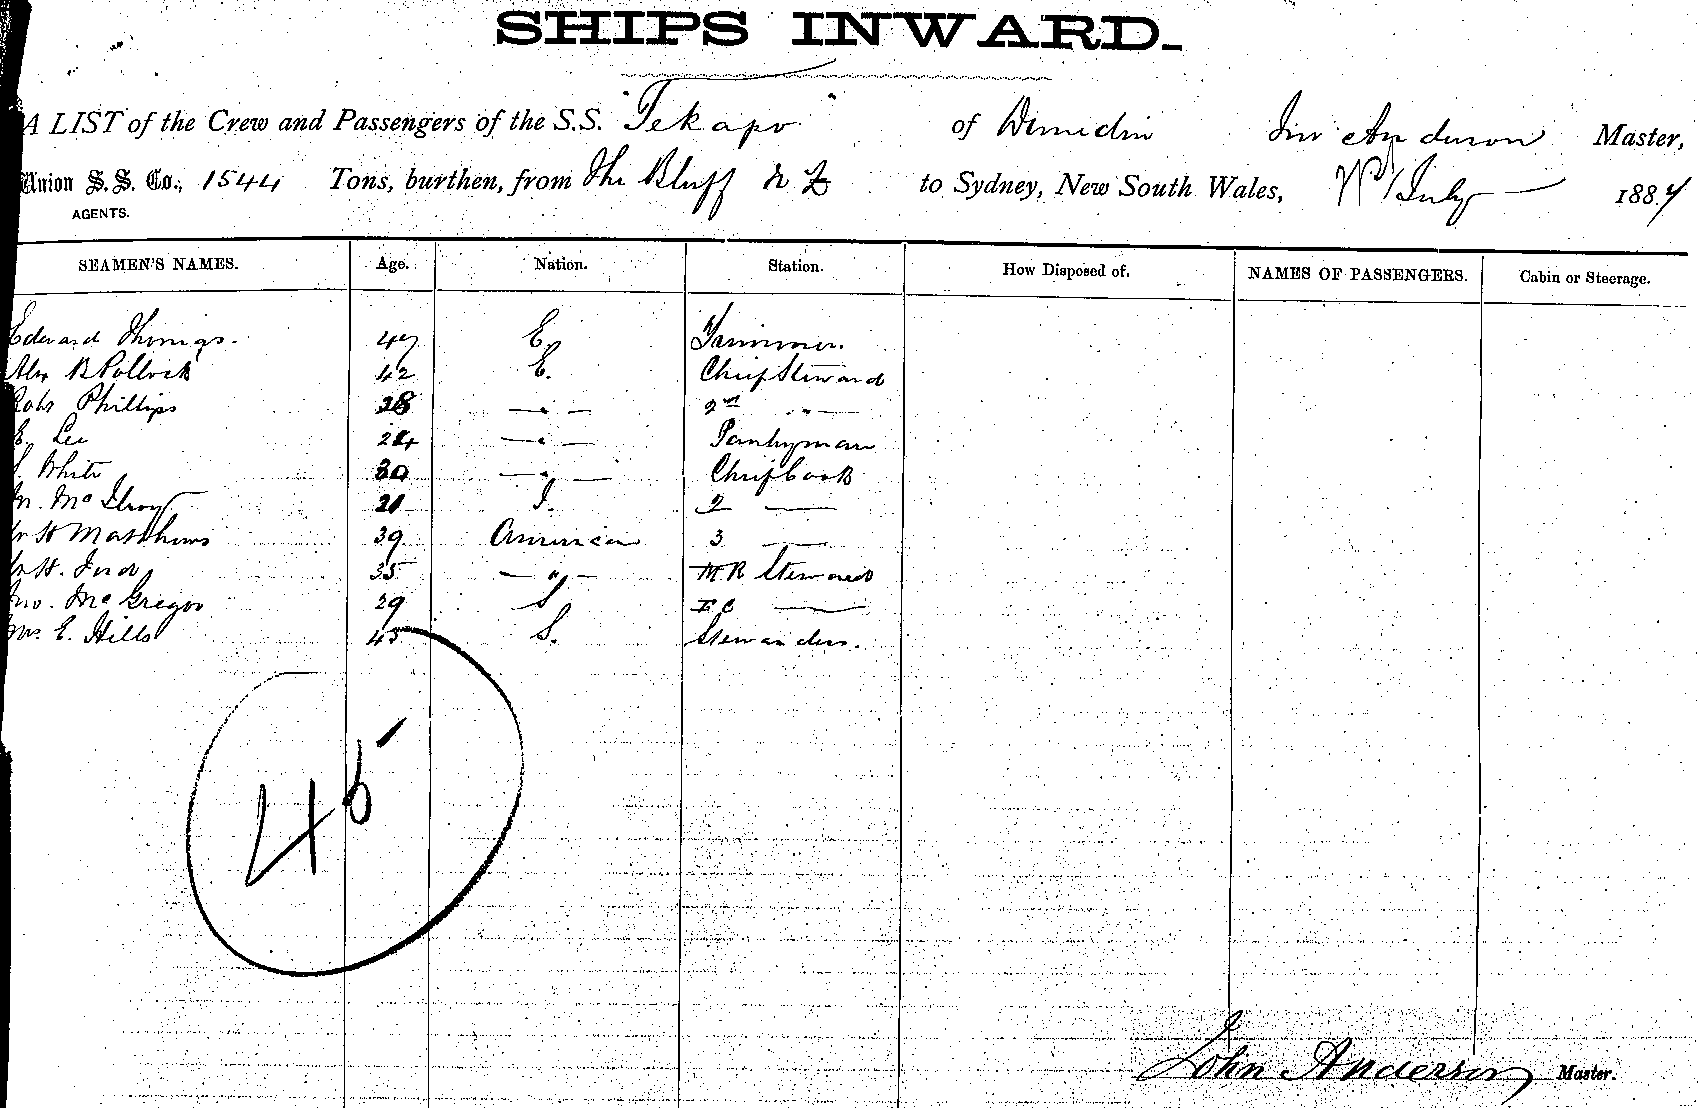 SHIPS INWARD.
A LIST of the Crew and Passengers of the S.S. "Tekapo" of Dunedin Jno Anderson Master,
Union S. S. Co., 1544 Tons, burthen, from The Bluff N Z to Sydney, New South Wales, July 1884
AGENTS.
SEAMEN'S NAMES. Age. Nation. Station. How Disposed of. NAMES OF PASSENGERS. Cabin or Steerage.
Edward Thomas. 47 E. Trimmer.
Alex B Pollock 42 E. Chief Steward
Robt Phillips 28 — " — 2nd — " —
E. Lee 24 — " — Pantryman
J. White 30 — " — Chief Cook
M. McIlroy 21 I. 2 —
W H Matthews 39 American 3 —
W H. 35 — " — M R Steward
Jno. McGregor 29 S F C —
Mrs E. Hills 45 S. Stewardess.
45
John Anderson Master.